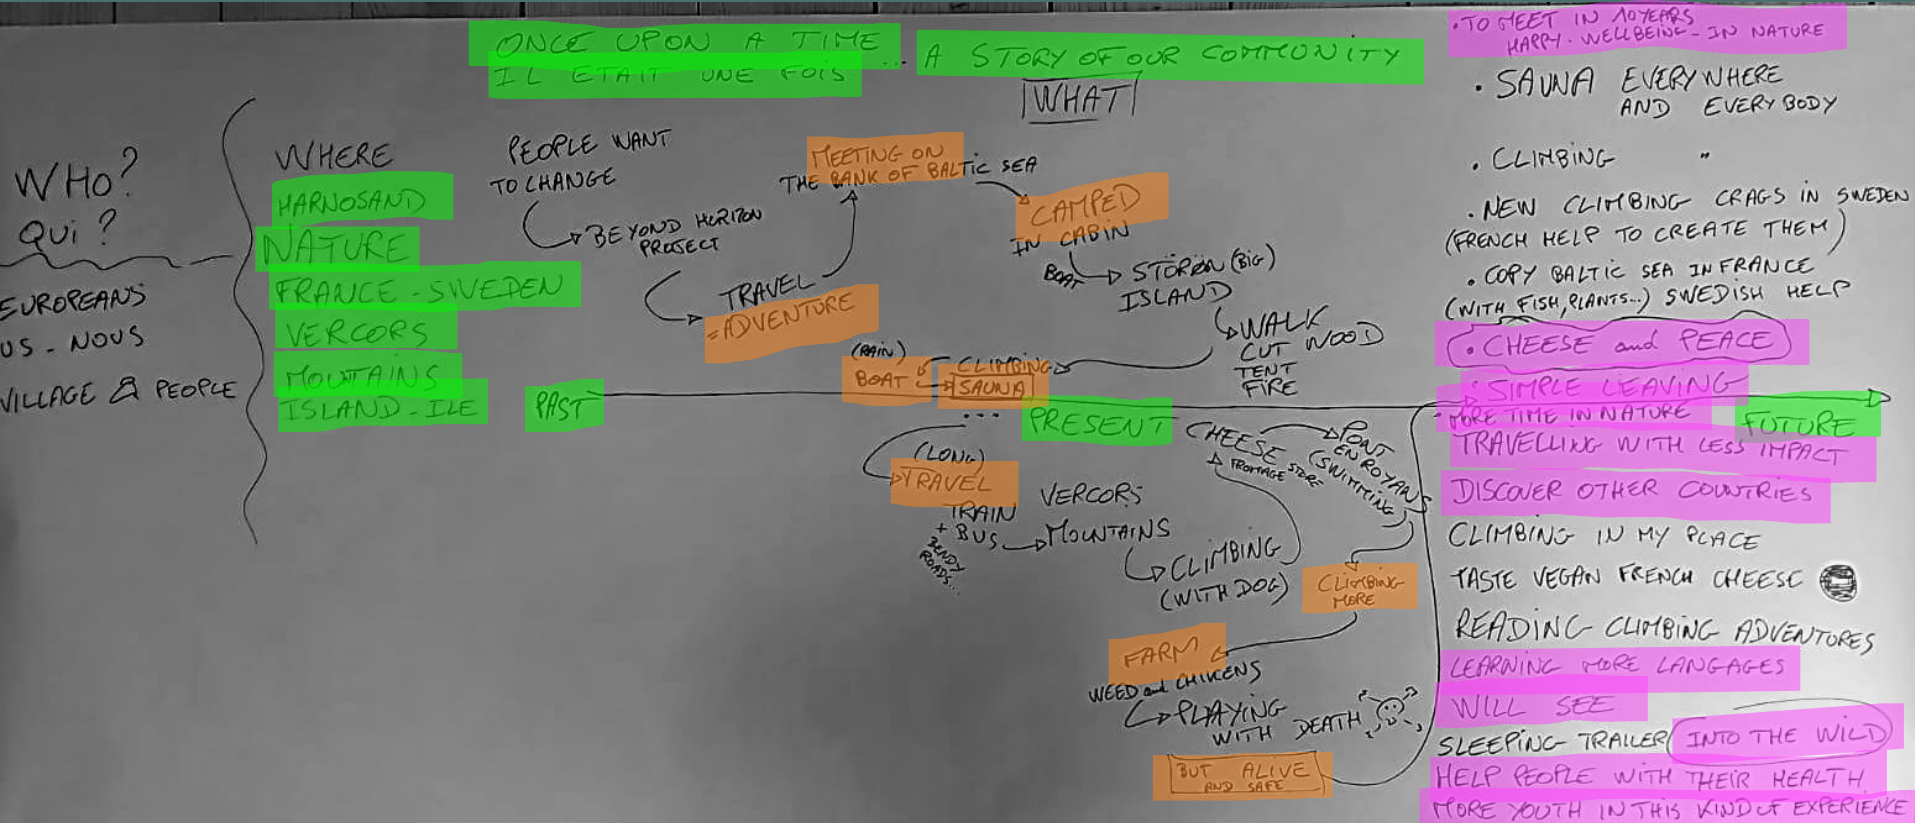 ONCE UPON A TIME
IL ETAIT UNE FOIS ... A STORY OF OUR COMMUNITY
WHAT
WHO?
QUI?
EUROPEANS
US - NOUS
VILLAGE & PEOPLE
WHERE
HARNOSAND
NATURE
FRANCE - SWEDEN
VERCORS
MOUTAINS
ISLAND - ILE
PAST
PEOPLE WANT
TO CHANGE
BEYOND HORIZON
PROJECT
TRAVEL
= ADVENTURE
MEETING ON
THE BANK OF BALTIC SEA
CAMPED
IN CABIN
BOAT
STÖRÖN (BIG)
ISLAND
WALK
CUT WOOD
TENT
FIRE
CLIMBING
(RAIN)
BOAT
SAUNA
...
PRESENT
(LONG)
TRAVEL
TRAIN
+ BUS
BENDY
ROADS...
VERCORS
MOUNTAINS
CLIMBING
(WITH DOG)
CHEESE
FROMAGE STORE
PONT
EN ROYANS
(SWIMMING)
CLIMBING
MORE
FARM
WEED and CHIKENS
PLAYING
WITH DEATH
BUT ALIVE
AND SAFE
FUTURE
• TO MEET IN 10 YEARS
HAPPY - WELLBEING - IN NATURE
• SAUNA EVERYWHERE
AND EVERYBODY
• CLIMBING "
• NEW CLIMBING CRAGS IN SWEDEN
(FRENCH HELP TO CREATE THEM)
• COPY BALTIC SEA IN FRANCE
(WITH FISH, PLANTS...) SWEDISH HELP
• CHEESE and PEACE
• SIMPLE LEAVING
- MORE TIME IN NATURE
TRAVELLING WITH LESS IMPACT
DISCOVER OTHER COUNTRIES
CLIMBING IN MY PLACE
TASTE VEGAN FRENCH CHEESE
READING CLIMBING ADVENTURES
LEARNING MORE LANGAGES
WILL SEE
SLEEPING TRAILER INTO THE WILD
HELP PEOPLE WITH THEIR HEALTH
MORE YOUTH IN THIS KIND OF EXPERIENCE